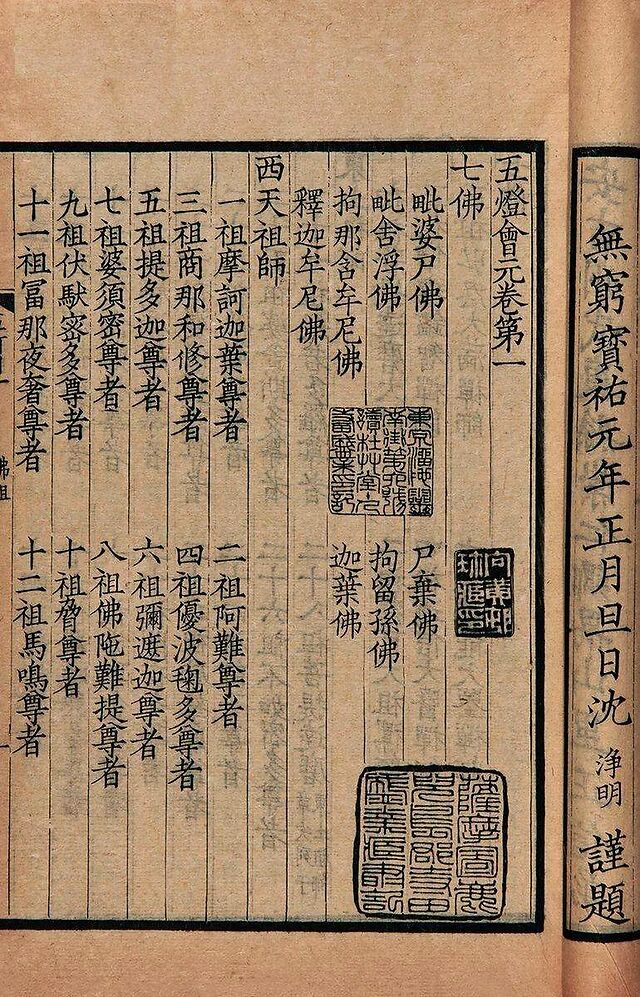 無窮寶祐元年正月旦日沈淨明謹題
五燈會元卷第一
七佛
毗婆尸佛 尸棄佛
毗舍浮佛 拘留孫佛
拘那含牟尼佛 迦葉佛
釋迦牟尼佛
西天祖師
一祖摩訶迦葉尊者 二祖阿難尊者
三祖商那和修尊者 四祖優波毱多尊者
五祖提多迦尊者 六祖彌遮迦尊者
七祖婆須密尊者 八祖佛陁難提尊者
九祖伏馱密多尊者 十祖脅尊者
十一祖冨那夜奢尊者 十二祖馬鳴尊者
佛祖